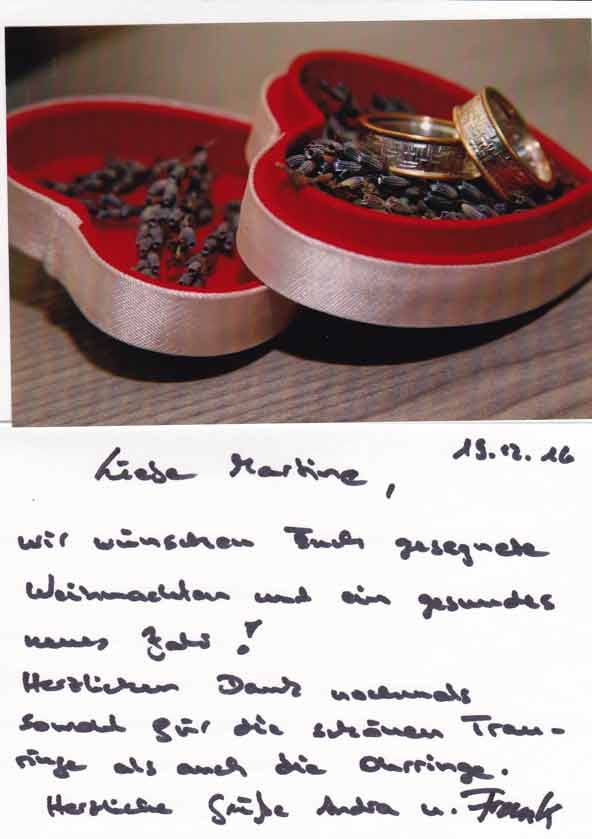 19.12.16
Liebe Martine,
wir wünschen Euch gesegnete
Weihnachten und ein gesundes
neues Jahr!
Herzlichen Dank nochmals
sowohl für die schönen Trau-
ringe als auch die Ohrringe.
Herzliche Grüße Andra u. Frank